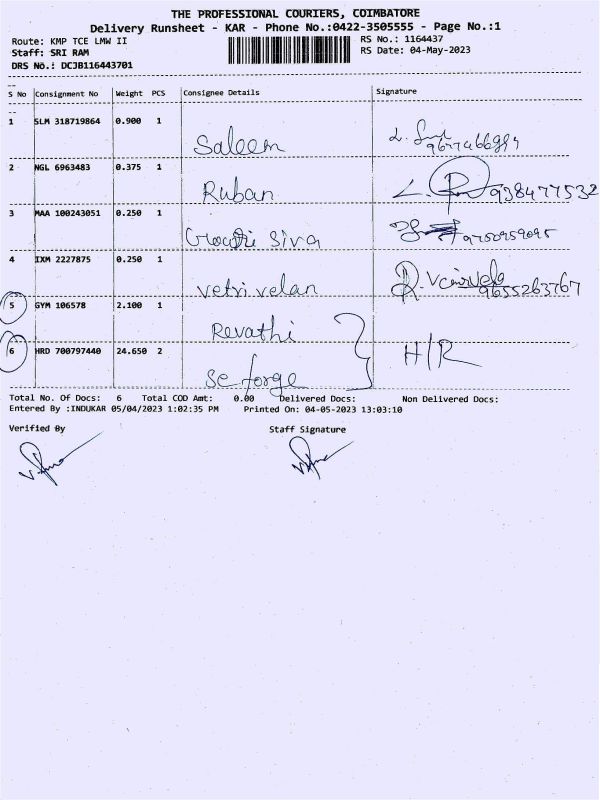 THE PROFESSIONAL COURIERS, COIMBATORE
Delivery Runsheet - KAR - Phone No.:0422-3505555 - Page No.:1
Route: KMP TCE LMW II RS No.: 1164437
Staff: SRI RAM RS Date: 04-May-2023
DRS No.: DCJB116443701
S No Consignment No Weight PCS Consignee Details Signature
1 SLM 318719864 0.900 1 Saleem
2 NGL 6963483 0.375 1 Ruban 938477532
3 MAA 100243051 0.250 1 Siva 9750959095
4 IXM 2227875 0.250 1 vetri velan 9655263767
5 GYM 106578 2.100 1 Revathi
6 HRD 700797440 24.650 2 SE forge H/R
Total No. Of Docs: 6 Total COD Amt: 0.00 Delivered Docs: Non Delivered Docs:
Entered By :INDUKAR 05/04/2023 1:02:35 PM Printed On: 04-05-2023 13:03:10
Verified By Staff Signature